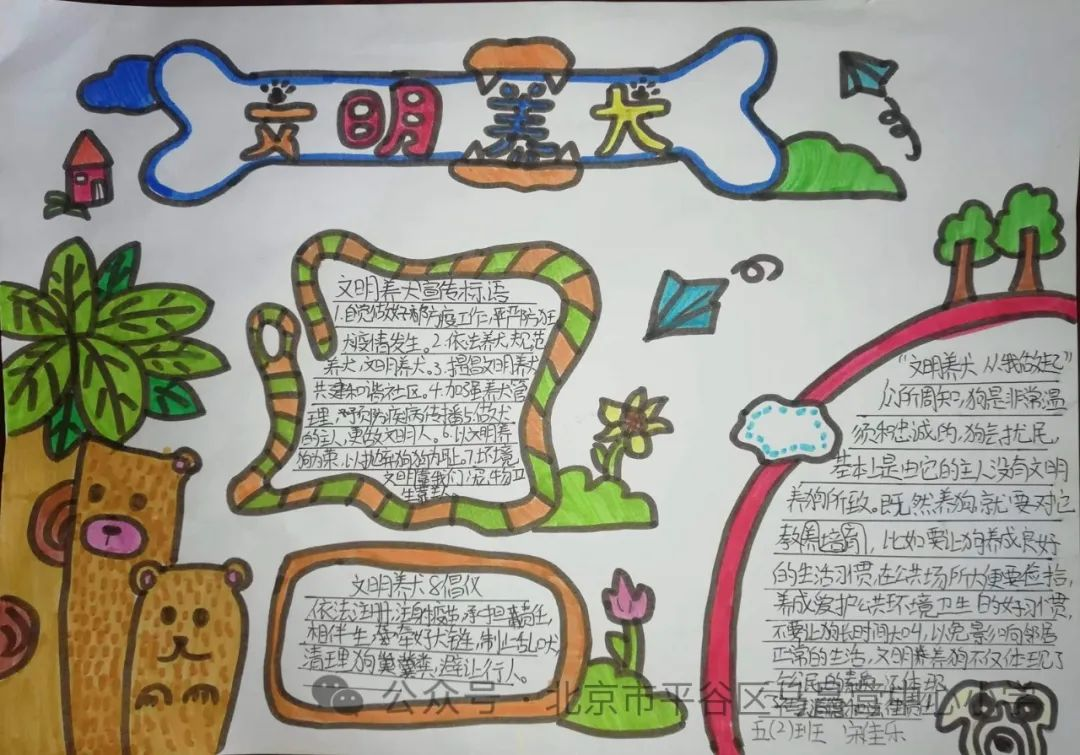 文明养犬
文明养犬宣传标语
1.自觉做好犬防疫工作,严防狂
犬疫情发生。2.依法养犬,规范
养犬,文明养犬。3.提倡文明养犬
共建和谐社区。4.加强养犬管
理,预防疾病传播5.做犬
的主人,更做文明人。6.以文明养
狗为荣,以抛弃狗狗为耻。7.环境
文明靠我们
生靠大
文明养犬8倡仪
依法注册,注身疫苗,承担责任,
相伴一生,牵好犬链,制止乱吠
清理狗粪,避让行人。
“文明养犬 从我做起”
公所周知,狗是非常温
须和忠诚的,狗会扰民,
基本上是由它的主人没有文明
养狗所致。既然养狗,就要对它
教 培 ,比如要让狗养成良好
的生活习惯,在公共场所大便要检拾,
养成爱护公共环境卫生的好习惯,
不要让狗长时间大叫,以免影响向邻居
正常的生活,文明养狗不仅体现了
五(2)班 宋佳乐
公众号·北京市平谷区马昌营中心小学